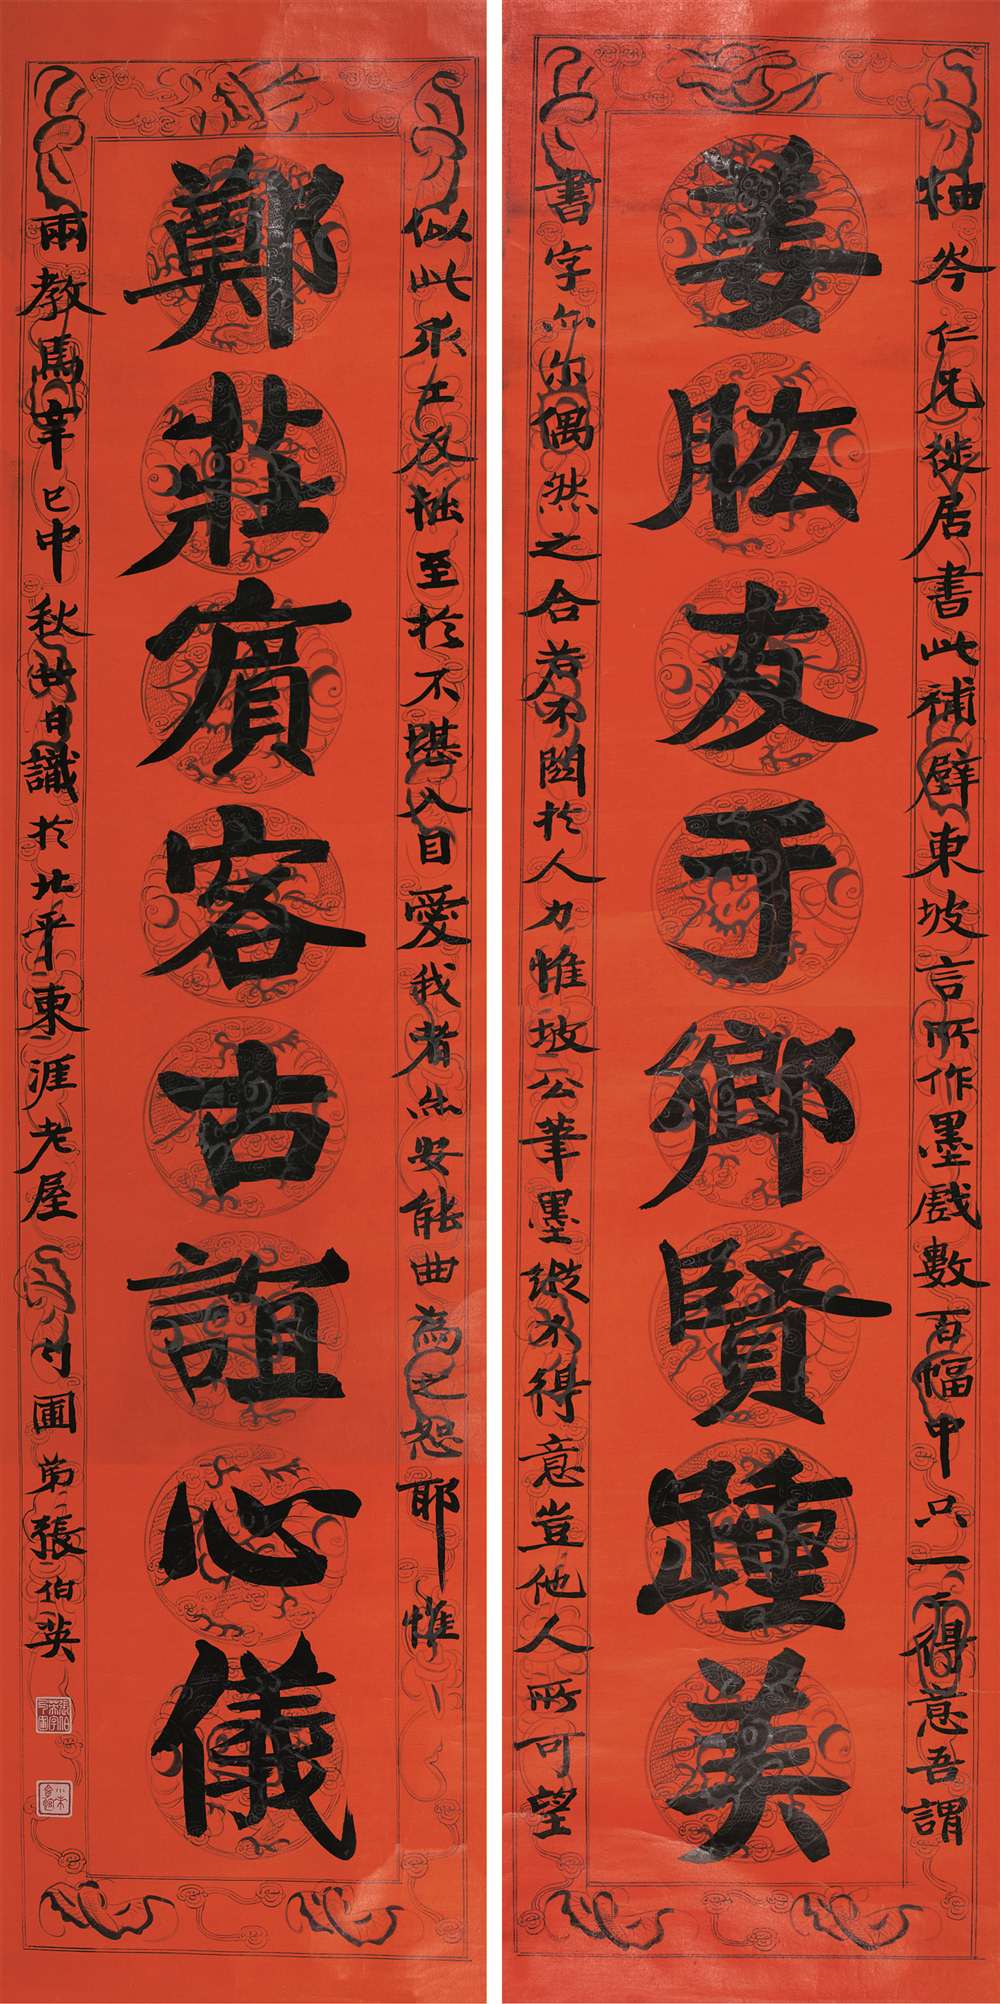 姜肱友于鄉賢踵美
鄭莊賓客古誼心儀
柚岑仁兄徙居書此補壁東坡言所作墨戲數百幅中只一二得意吾謂
書字亦尔偶然之合若不關於人力惟坡公筆墨縱不得意豈他人所可望
似此永左友拙至於不堪入目愛我者亦安能曲為之恕耶惟
兩教焉辛巳中秋此日識於北平東涯老屋勺圃弟張伯英